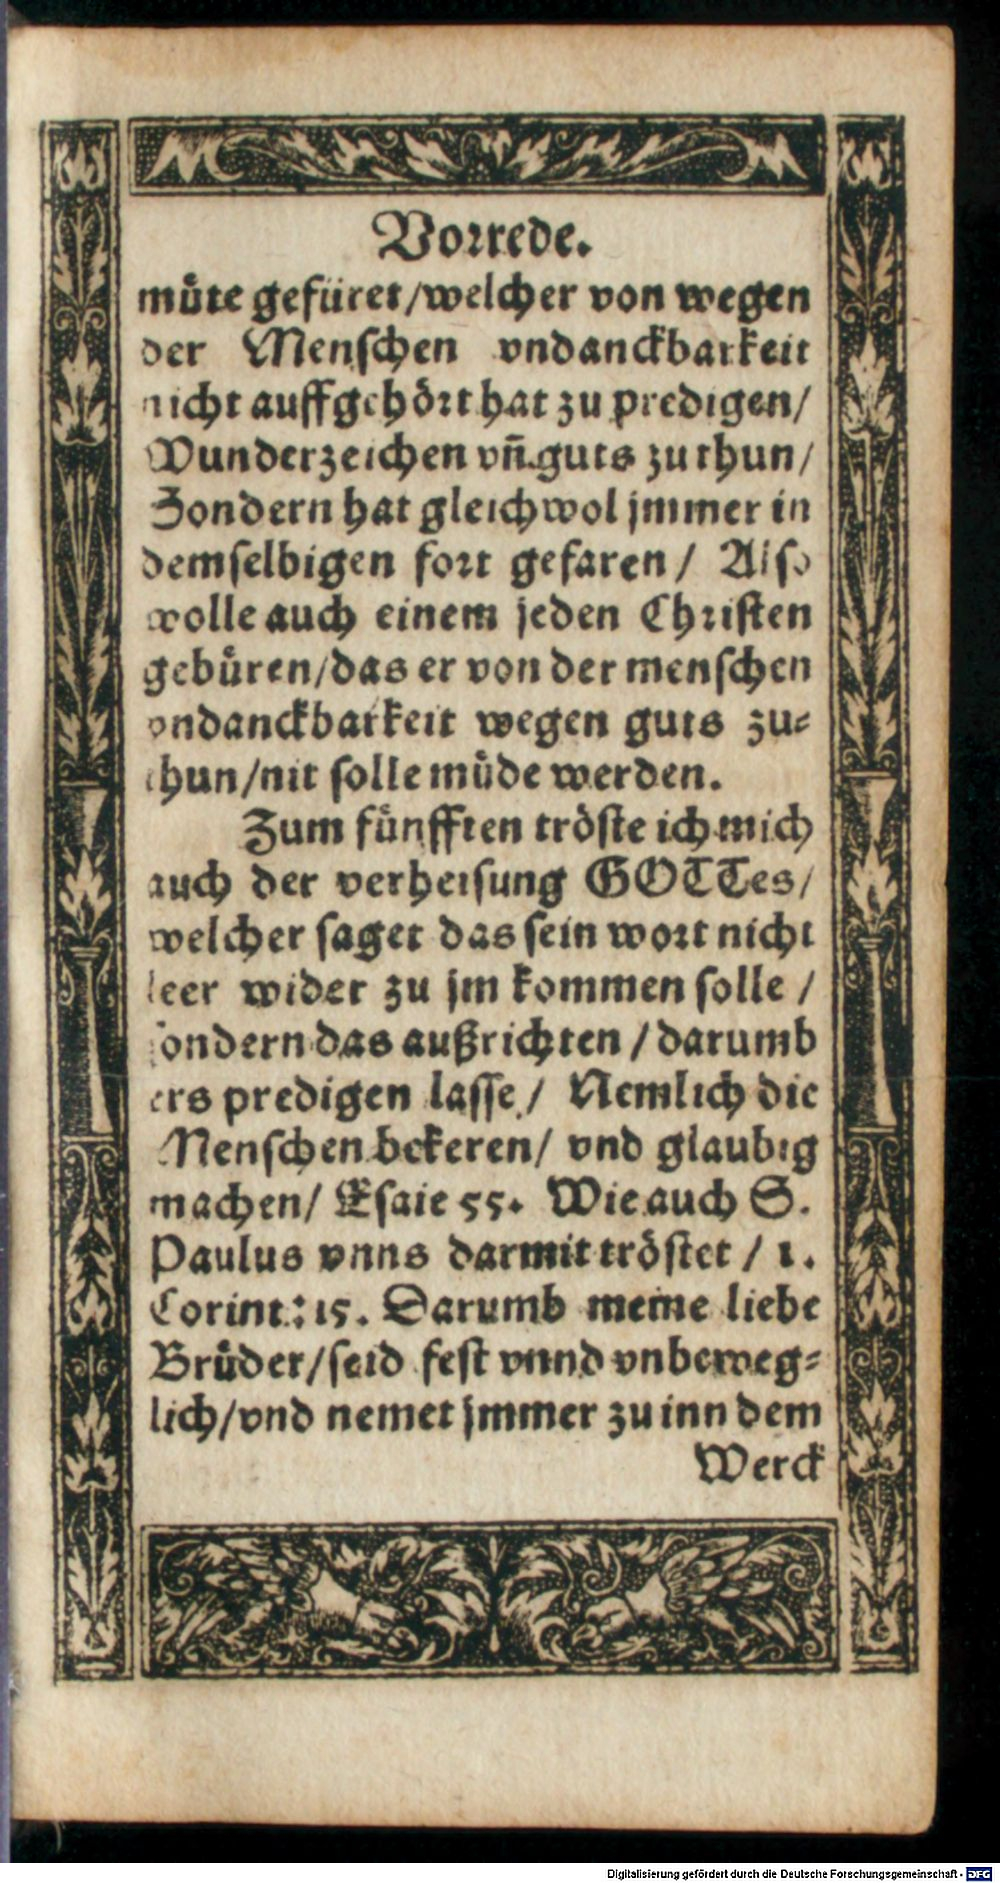 Vorrede.
muͤte gefuͤret/welcher von wegen
der Menschen vndanckbarkeit
nicht auffgehoͤrt hat zu predigen/
Wunderzeichen vn̄ guts zu thun/
Sondern hat gleichwol jmmer in
demselbigen fort gefaren/ Also
wolle auch einem jeden Christen
gebuͤren/das er von der menschen
vndanckbarkeit wegen guts zu⸗
thun/nit solle muͤde werden.
Zum fuͤnfften troͤste ich mich
auch der verheisung GOTTes/
welcher saget das sein wort nicht
leer wider zu jm kommen solle /
sondern das außrichten /darumb
ers predigen lasse/ Nemlich die
Menschen bekeren/ vnd glaubig
machen/ Esaie 55. Wie auch S.
Paulus vnns darmit troͤstet / 1.
Corint: 15. Darumb meine liebe
Bruͤder/seid fest vnnd vnbeweg⸗
lich/vnd nemet jmmer zu inn dem
Werck
Digitalisierung gefördert durch die Deutsche Forschungsgemeinschaft - DFG